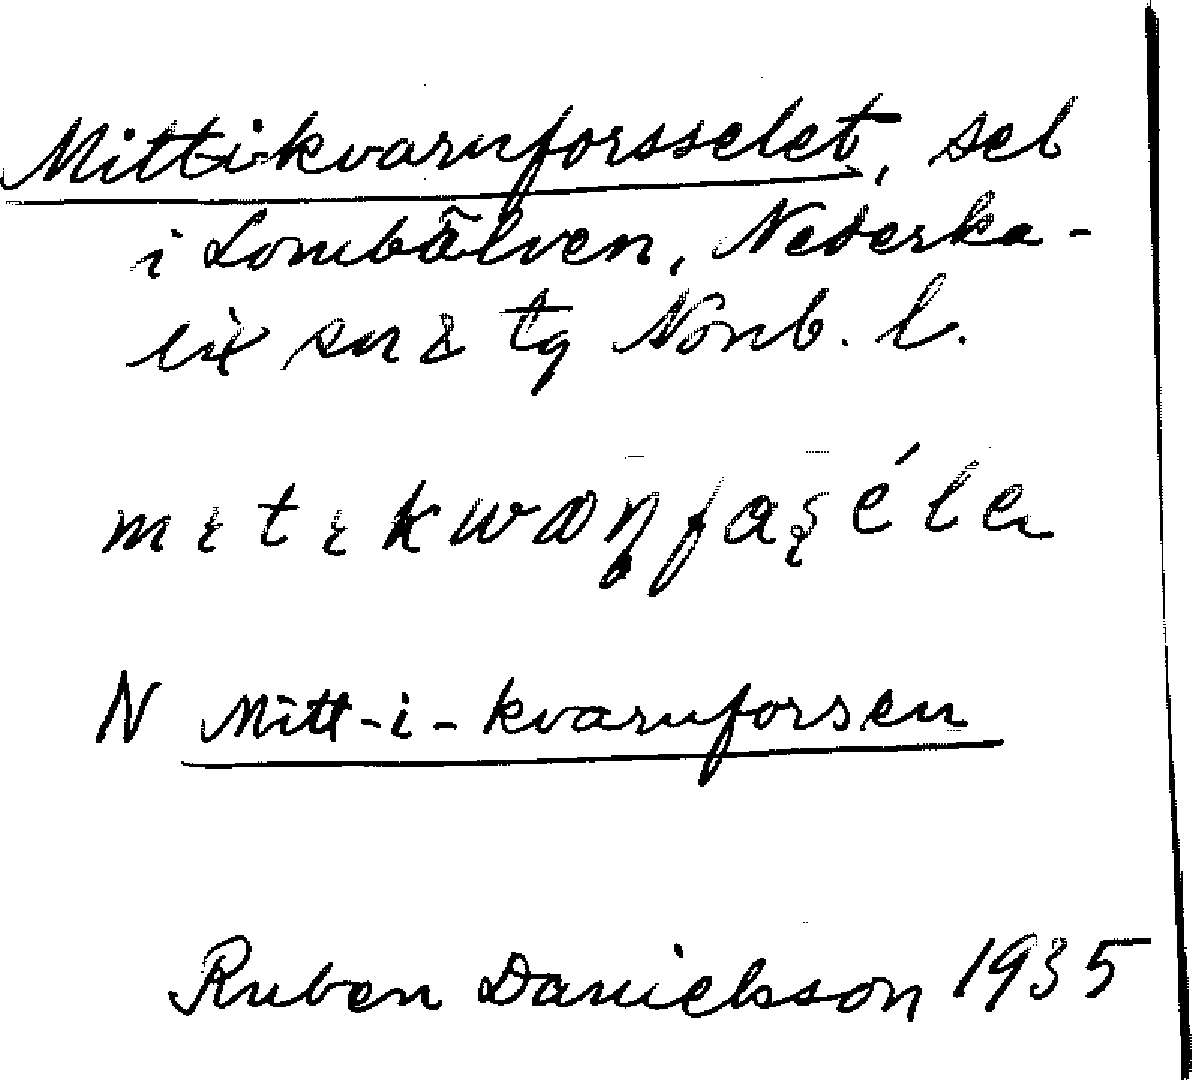 Mittikvarnforsselet, sel
i Lombälven, Nederka-
lix sn & tg Nonb. l.
N Mitt-i-kvarnforsen
Ruben Danielsson 1935